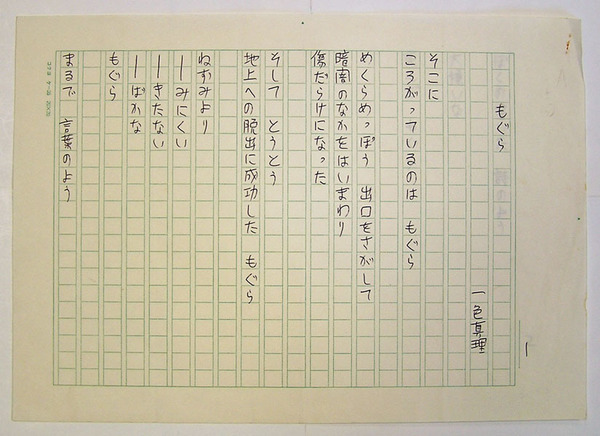 もぐら
一色真理
1
そこに
ころがっているのは　もぐら
めくらめっぽう　出口をさがして
暗闇のなかをはいまわり
傷だらけになった
そして　とうとう
地上への脱出に成功した　もぐら
ねずみより
―みにくい
―きたない
―ばかな
もぐら
まるで　言葉のよう